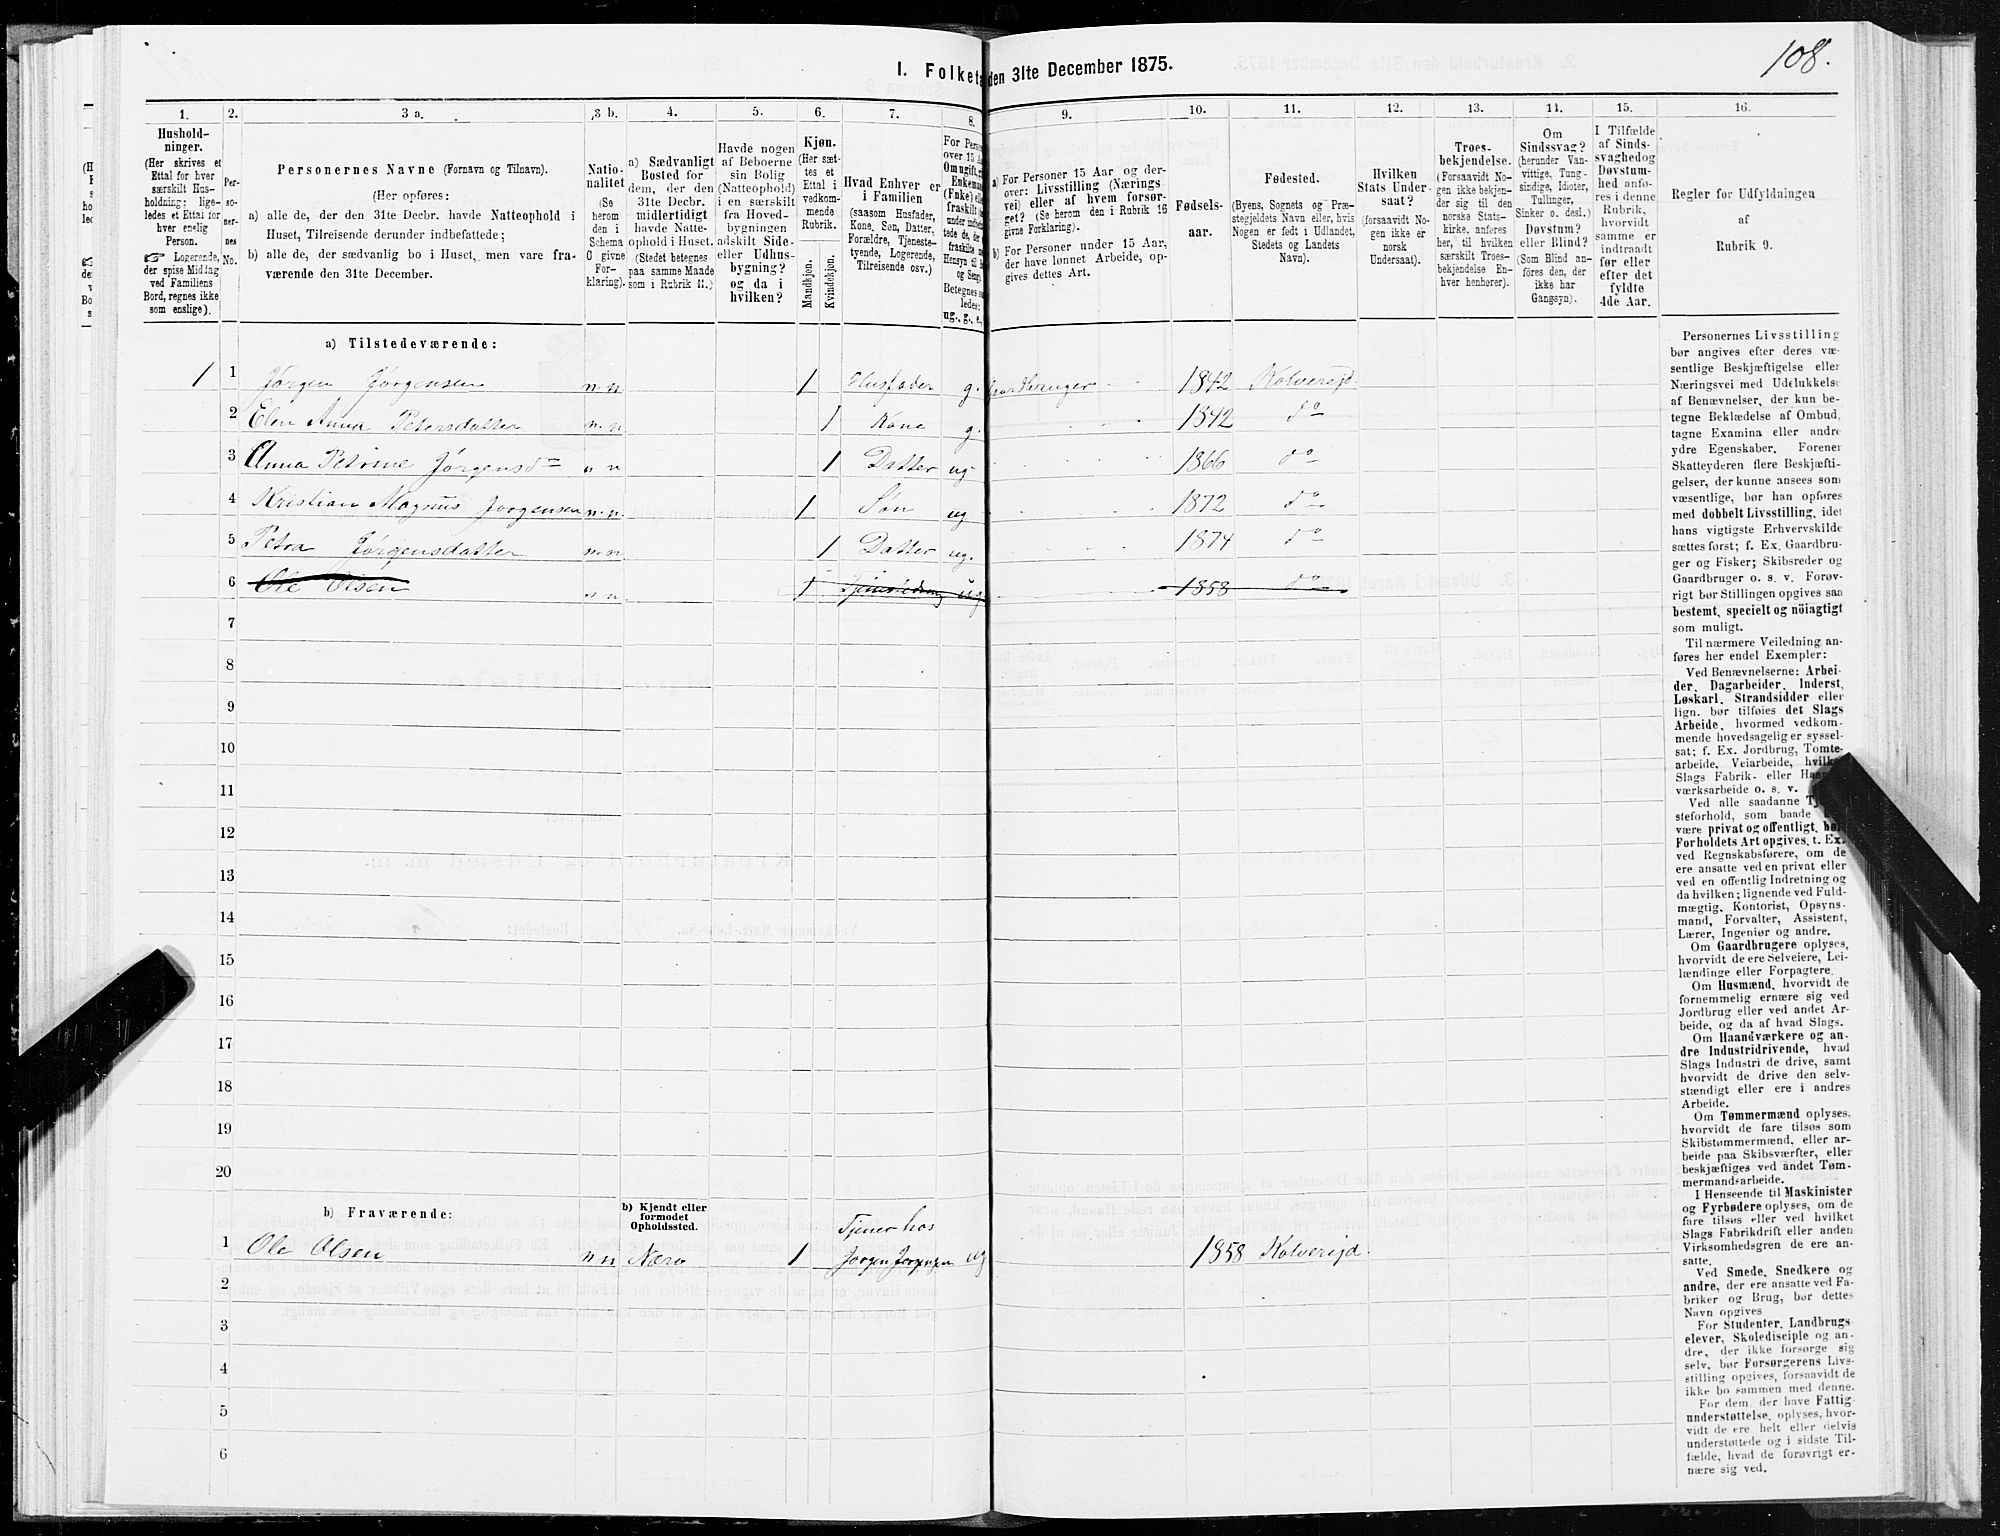 108.
I. Folketa den 31te December 1875.
1. 2. 3 a. 3 b. 4. 5. 6. 7. 8. 9. 10. 11. 12. 13. 14. 15. 16.
Hushold-
ninger.
(Her skrives et
Ettal for hver
særskilt Hus-
holdning; lige-
ledes et Ettal for
hver enslig
Person.
Logerende,
der spise Middag
ved Familiens
Bord, regnes ikke
som enslige).
Per-
so-
ner-
nes
No.
Personernes Navne (Fornavn og Tilnavn).
(Her opføres:
a) alle de, der den 31te Decbr. havde Natteophold i
Huset, Tilreisende derunder indbefattede;
b) alle de, der sædvanlig bo i Huset, men vare fra-
værende den 31te December.
Natio-
nalitet
(Se
herom
den i
Schema
C givne
For-
klaring).
a) Sædvanligt
Bosted for
dem, der den
31te Decbr.
midlertidigt
havde Natte-
ophold i Huset.
(Stedet betegnes
paa samme Maade
som i Rubrik 11.)
Havde nogen
af Beboerne
sin Bolig
(Natteophold)
i en særskilt
fra Hoved-
bygningen
adskilt Side-
eller Udhus-
bygning?
og da i
hvilken?
Kjøn.
(Her sæt-
tes et
Ettal i
vedkom-
mende
Rubrik.
Mandkjøn.
Kvindekjøn.
Hvad Enhver er
i Familien
(saasom Husfader,
Kone, Søn, Datter,
Forældre, Tjeneste-
tyende, Logerende,
Tilreisende osv.)
For Perso
over 15 Aa
Om ugift, g
Enkema
(Fnke) ell
fraskilt
under indb
tede de, de
fraskilte
Hensyn til
og Seng
Betegnes
ledes:
ug., g., e.,
a) For Personer 15 Aar og der-
over: Livsstilling (Nærings-
vei) eller af hvem forsør-
get? (Se herom den i Rubrik 16
givne Forklaring).
b) For Personer under 15 Aar,
der have lønnet Arbeide, op-
gives dettes Art.
Fødsels-
aar.
Fødested.
(Byens, Sognets og Præ-
stegjeldets Navn eller, hvis
Nogen er født i Udlandet,
Stedets og Landets
Navn).
Hvilken
Stats Under-
saat?
(forsaavidt No-
gen ikke er
norsk
Undersaat).
Troes-
bekjendelse.
(Forsaavidt No-
gen ikke bekjen-
der sig til den
norske Stats-
kirke, anføres
her, til hvilken
særskilt Troes-
bekjendelse En-
hver henhører).
Om
Sindssvag?
(herunder Van-
vittige, Tung-
sindige, Idioter,
Tullinger,
Sinker o. desl.)
Døvstum?
eller Blind?
(Som Blind an-
føres den, der
ikke har
Gangsyn).
I Tilfælde
af Sinds-
svaghedog
Døvstum-
hed anfø-
res i denne
Rubrik,
hvorvidt
samme er
indtraadt
før eller
efter det
fyldte
4de Aar.
Regler for Udfyldningen
af
Rubrik 9.
a) Tilstedeværende:
1 1 Jørgen Jørgensen n. n 1 Husfader g. gaardbruger 1842 Kolvereid
2 Elen Anna Petersdatter n. n 1 Kone g. 1842 do
3 Anna Petrine Jørgensdr n n 1 Datter ug 1866 do
4 Kristian Magnus Jørgensen n. n. 1 Søn ug 1872 do
5 Petra Jørgensdatter n. n 1 Datter ug. 1874 do
6 Ole Olsen n n 1 ug 1858 do
7
8
9
10
11
12
13
14
15
16
17
18
19
20
b) Fraværende:
b) Kjendt eller
formodet
Opholdssted.
Tjener hos
1 Ole Olsen n n Nærø 1 Jørgen Jørgensen ug 1858 Kolvereid.
2
3
4
5
6
Personernes Livsstilling
bør angives efter deres væ-
sentlige Beskjæftigelse eller
Næringsvei med Udelukkelse
af Benævnelser, der kun be-
tegne Beklædelse af Ombud,
tagne Examina eller andre
ydre Egenskaber. Forener
Skatteyderen flere Beskjæfti-
gelser, der kunne ansees som
væsentlige, bør han opføres
med dobbelt Livsstilling, idet
hans vigtigste Erhvervskilde
sættes først; f. Ex. Gaardbru-
ger og Fisker; Skibsreder og
Gaardbruger o. s. v. Forøv-
rigt bør Stillingen opgives saa
bestemt, specielt og nöiagtigt
som muligt.
Til nærmere Veiledning an-
føres her endel Exempler:
Ved Benævnelserne: Arbei-
der, Dagarbeider, Inderst,
Løskarl, Strandsidder eller
lign. bør tilføies det Slags
Arbeide, hvormed vedkom-
mende hovedsagelig er syssel-
sat; f. Ex. Jordbrug, Tomte-
arbeide, Veiarbeide, hvilke
Slags Fabrik- eller Haand-
værksarbeide o. s. v.
Ved alle saadanne Tje-
steforhold, som baade
være privat og offentligt, bør
Forholdets Art opgives, t. Ex.
ved Regnskabsførere, om de
ere ansatte ved en privat eller
ved en offentlig Indretning og
da hvilken; lignende ved Fuld-
mægtig, Kontorist, Opsyns-
mand, Forvalter, Assistent,
Lærer, Ingeniør og andre.
Om Gaardbrugere oplyses,
hvorvidt de ere Selveiere, Lei-
lændinge eller Forpagtere.
Om Husmænd, hvorvidt de
fornemmelig ernære sig ved
Jordbrug eller ved andet Ar-
beide, og da af hvad Slags.
Om Haandværkere og an-
dre Industridrivende, hvad
Slags Industri de drive, samt
hvorvidt de drive den selv-
stændigt eller ere i andres
Arbeide.
Om Tømmermænd oplyses,
hvorvidt de fare tilsøs som
Skibstømmermænd, eller ar-
beide paa Skibsværfter, eller
beskjæftiges ved andet Tøm-
mermandsarbeide.
I Henseende til Maskinister
og Fyrbødere oplyses, om de
fare tilsøs eller ved hvilket
Slags Fabrikdrift eller anden
Virksomhedsgren de ere an-
satte.
Ved Smede, Snedkere og
andre, der ere ansatte ved Fa-
briker og Brug, bør dettes
Navn opgives
For Studenter, Landbrugs-
elever, Skoledisciple og an-
dre, der ikke forsørge sig
selv, bør Forsørgerens Livs-
stilling opgives, forsaavidt de
ikke bo sammen med denne.
For dem, der have Fattig-
understøttelse, oplyses, hvor-
vidt de ere helt eller delvis
understøttede og i sidste Til-
fælde, hvad de forøvrigt er-
nære sig ved.